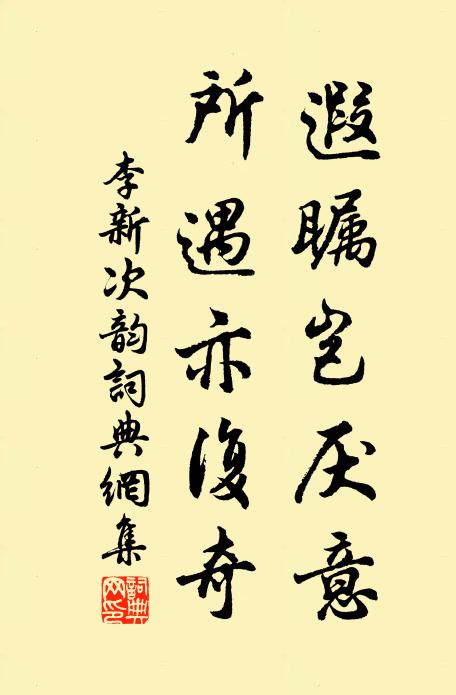 遐瞩岂厌意
所遇亦復奇
李新次韵詞典網集
詞典
网印